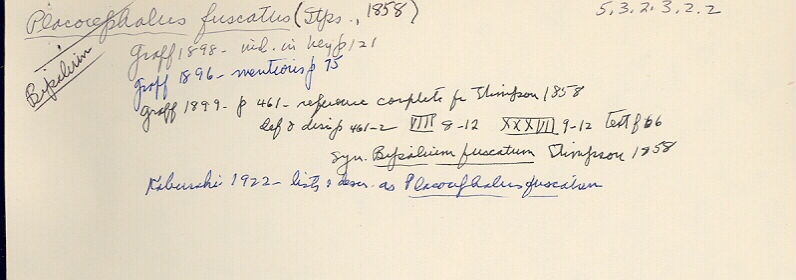 Placocephalus fuscatus (Stps., 1858) 5.3.2.3.2.2
Bipalium
Graff 1898 - incl. in key p 121
Graff 1896 - mentions p 75
Graff 1899 - p 461 - reference complete for Stimpson 1858
def & disc p 461-2 VIII 8-12 XXXVI 9-12 Text f 66
Syn. Bipalium fuscatum Stimpson 1858
Kaburaki 1922 - lists & descr. as Placocephalus fuscatus